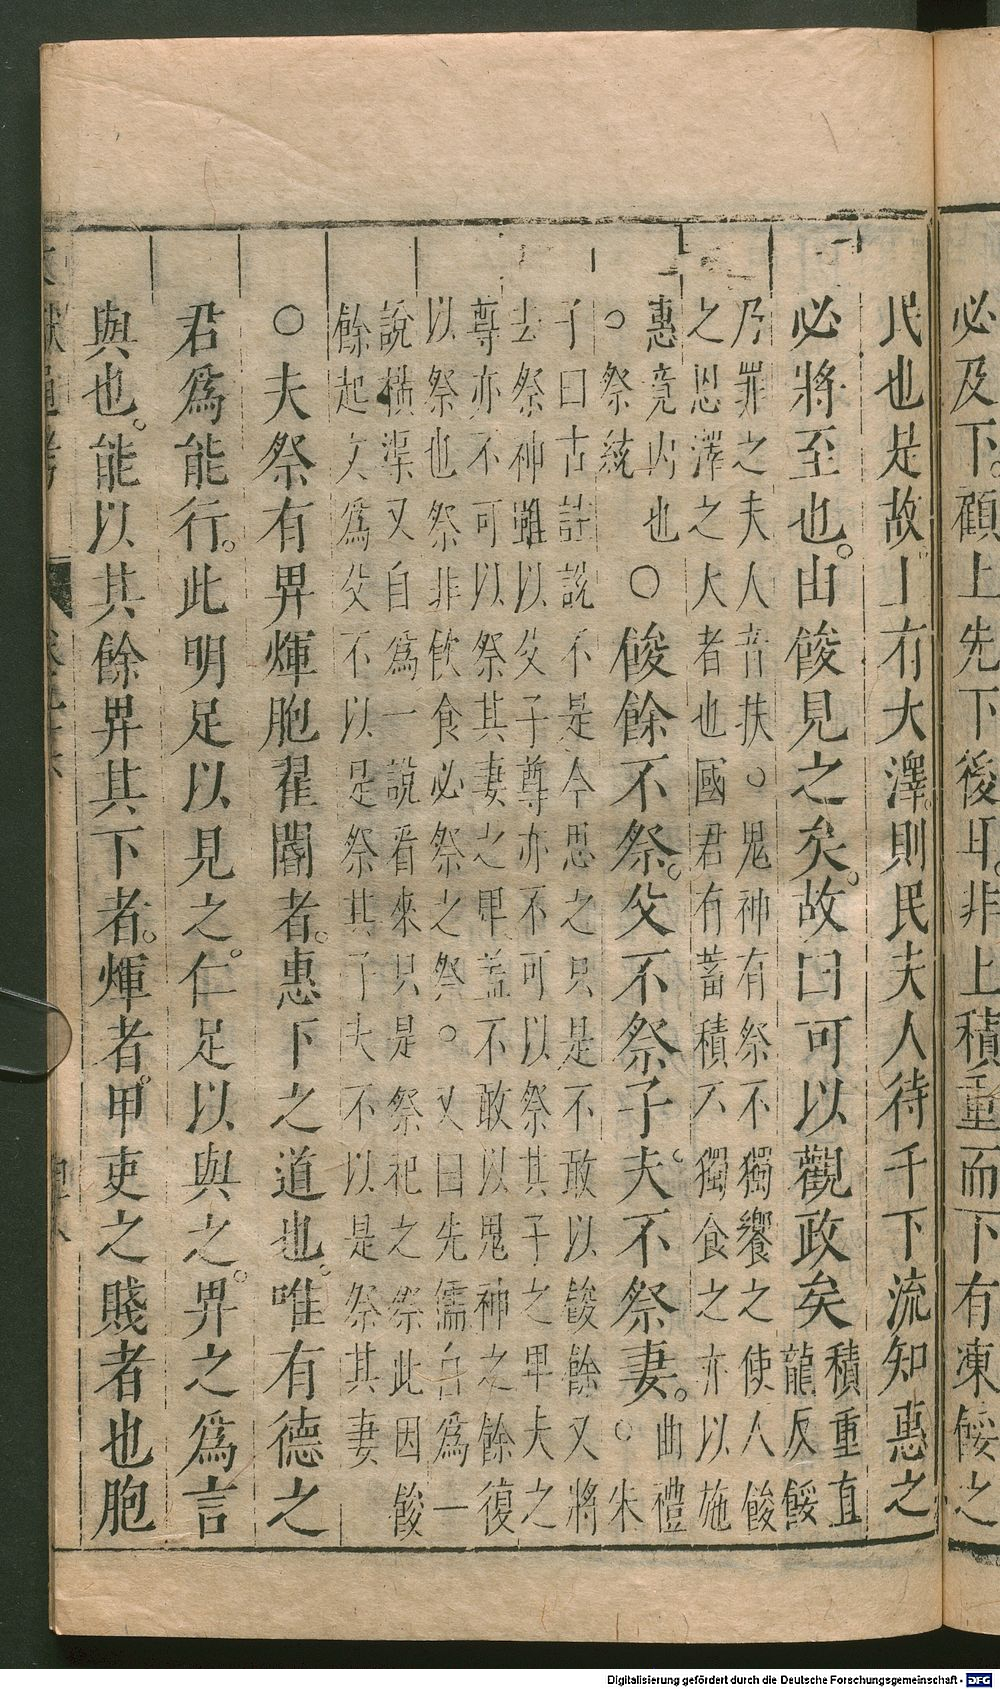 必及下。顧上先下後耳。非上積重而下有凍餒之
民也是故上有大澤。則民夫人待于下流知惠之
必將至也。由餕見之矣。故曰可以觀政矣積重直龍反餒
乃罪之夫人音扶○鬼神有祭不獨饗之使人餕
之恩澤之大者也國君有蓄積不獨食之亦以施
惠竟内也
○祭統
○餕餘不祭。父不祭子。夫不祭妻。曲禮○朱
子曰古註說不是今思之只是不敢以餕餘又將
去祭神雖以父子尊亦不可以祭其子之卑夫之
尊亦不可以祭其妻之卑蓋不敢以鬼神之餘復
以祭也祭非飲食必祭之祭○又曰先儒自為一
說橫渠又自為一說看來只是祭祀之祭此因餕
餘起文爲父不以是祭其子夫不以是祭其妻
○夫祭有畀煇胞翟閽者。惠下之道也。唯有德之
君爲能行。此明足以見之。仁足以與之。畀之爲言
與也。能以其餘畀其下者。煇者。甲吏之賤者也胞